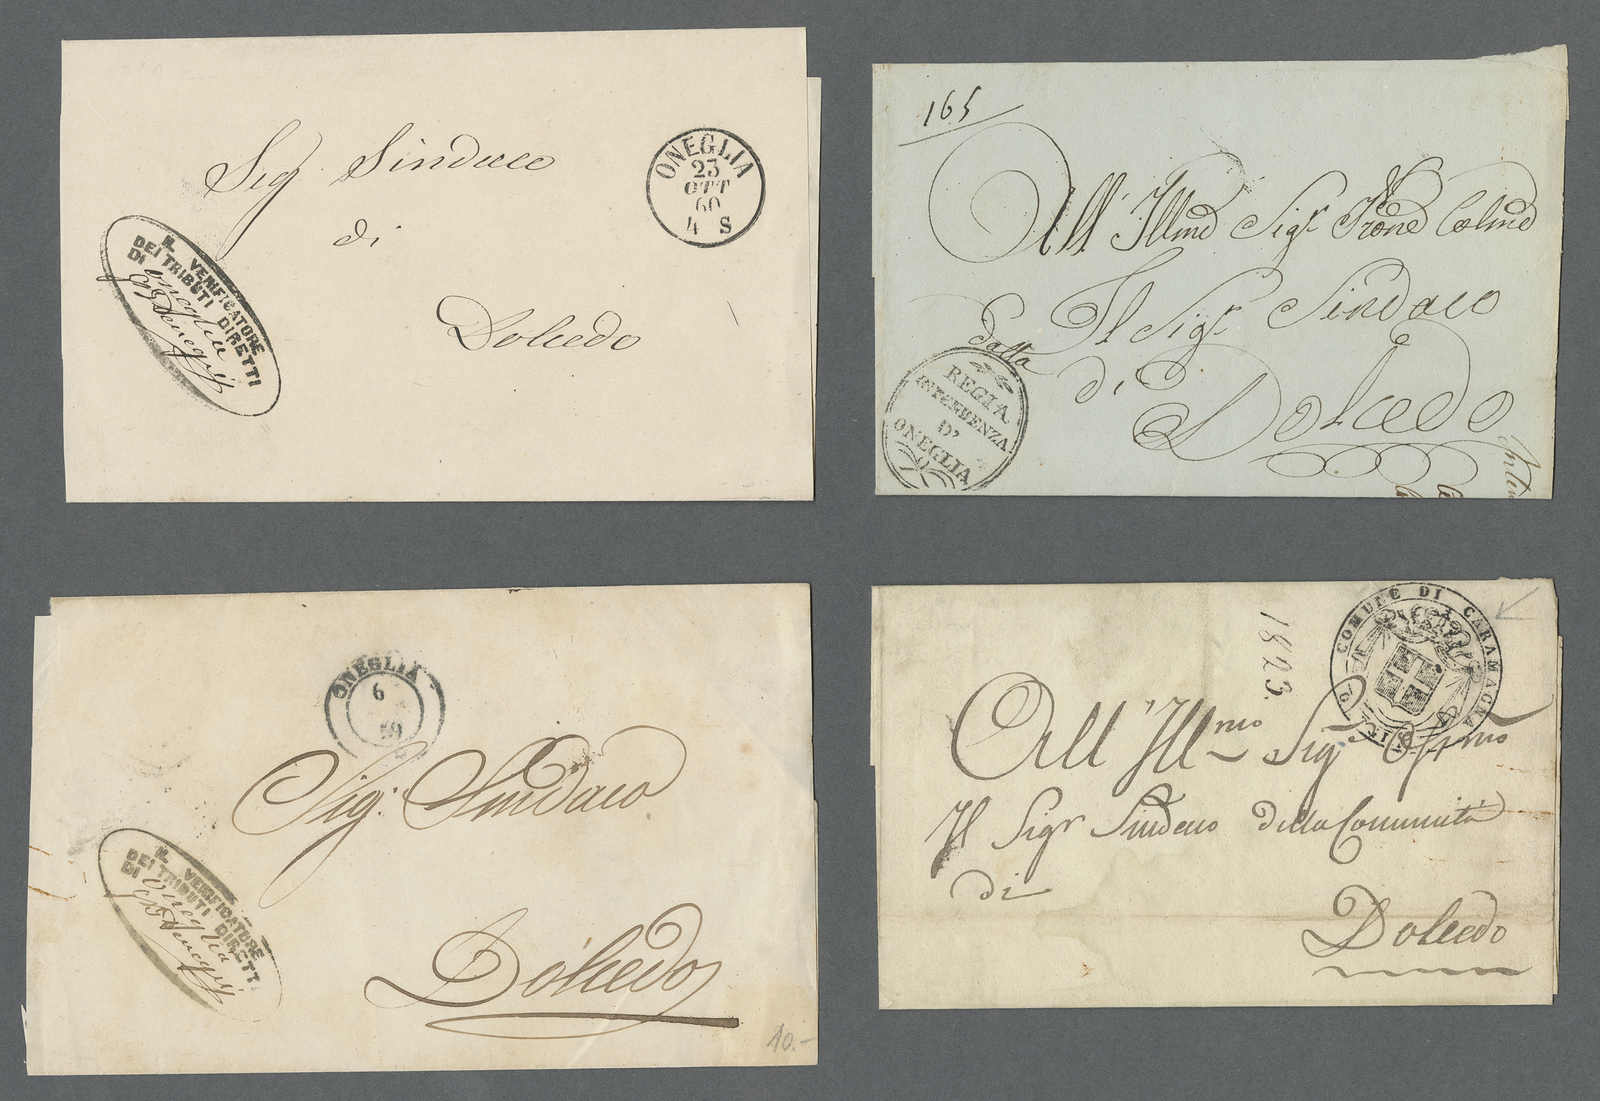 Sig. Sindaco
di
Dolcedo
ONEGLIA
23
OTT
60
4 S
IL VERIFICATORE
DEI TRIBUTI DIRETTI
DI Oneglia
165
All' Illmo Sigr Prone Colmo
Il Sigr Sindaco
di
Dolcedo
Dalla
REGIA
INTENDENZA
D'
ONEGLIA
ONEGLIA
6
59
Sig. Sindaco
Dolcedo
IL VERIFICATORE
DEI TRIBUTI DIRETTI
DI Oneglia
10.-
1823.
COMUNE DI CARAMAGNA
All' Illmo Sigr
Il Sigr Sindaco della Comunità
di
Dolcedo